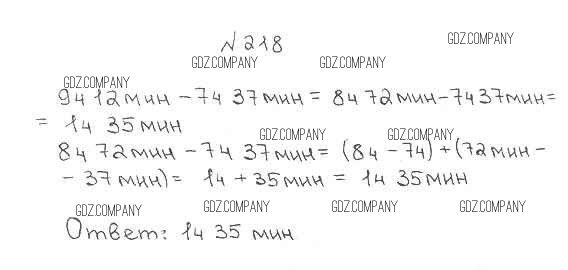 № 218
GDZ.COMPANY
GDZ.COMPANY GDZ.COMPANY
GDZ.COMPANY
9ч 12мин - 7ч 37мин = 8ч 72мин - 7ч 37мин =
= 1ч 35 мин
GDZ.COMPANY GDZ.COMPANY
8ч 72мин - 7ч 37мин = (8ч - 7ч) + (72мин -
- 37мин) = 1ч + 35мин = 1ч 35мин
GDZ.COMPANY GDZ.COMPANY GDZ.COMPANY GDZ.COMPANY
Ответ: 1ч 35 мин